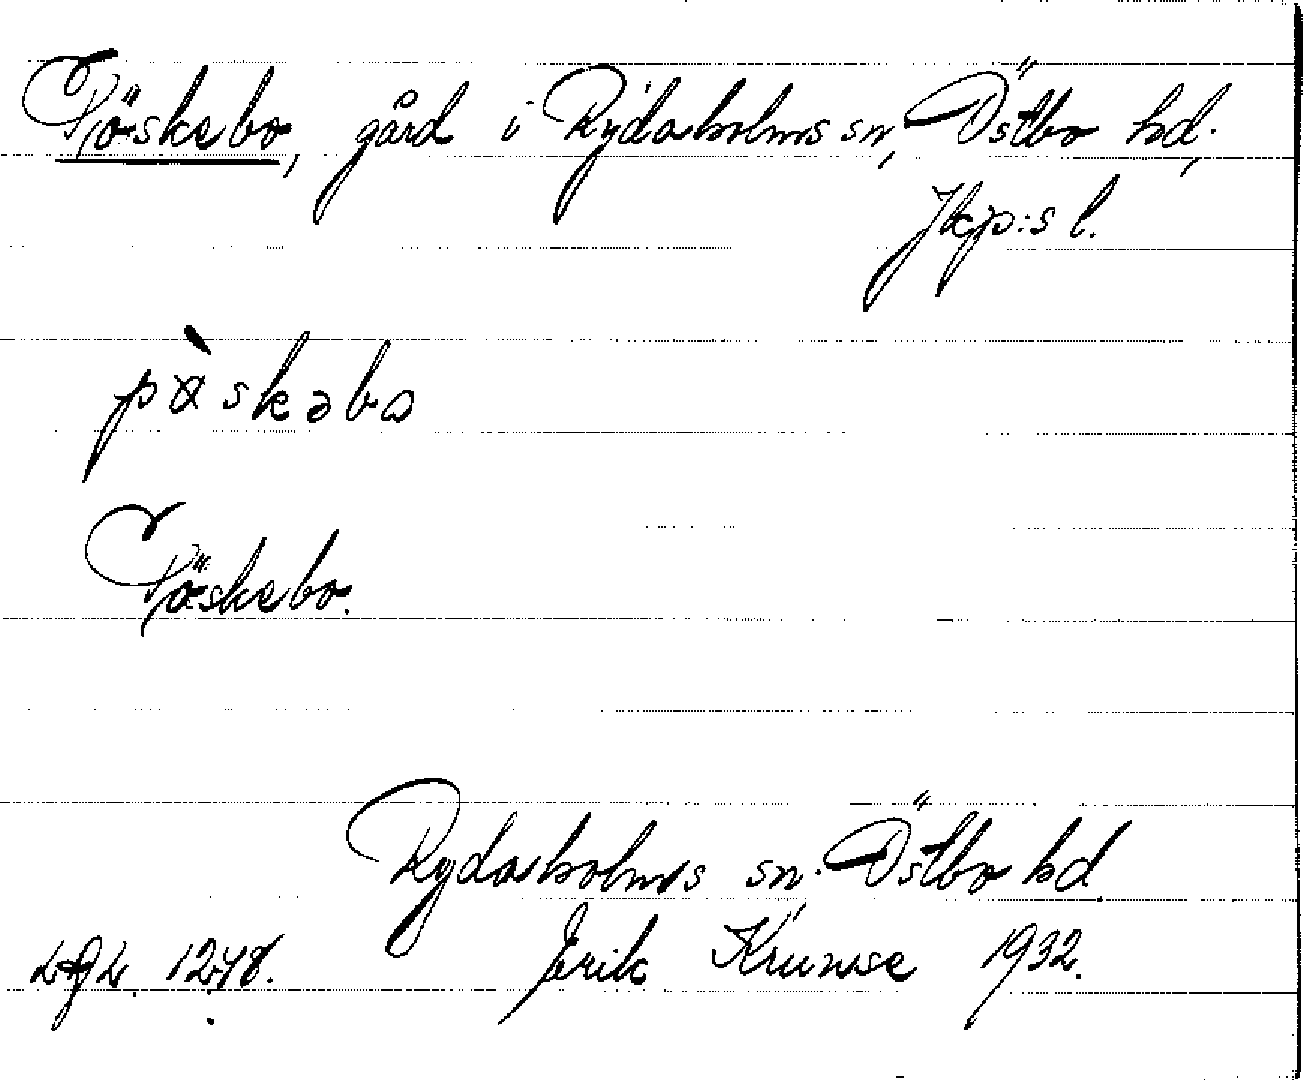 Pöskebo, gård i Rydaholms sn, Östbo hd.,
Jkp:s l.
pö̀skəbo
Pöskebo.
Rydaholms sn. Östbo hd
1278. Erik Krunse 1932.